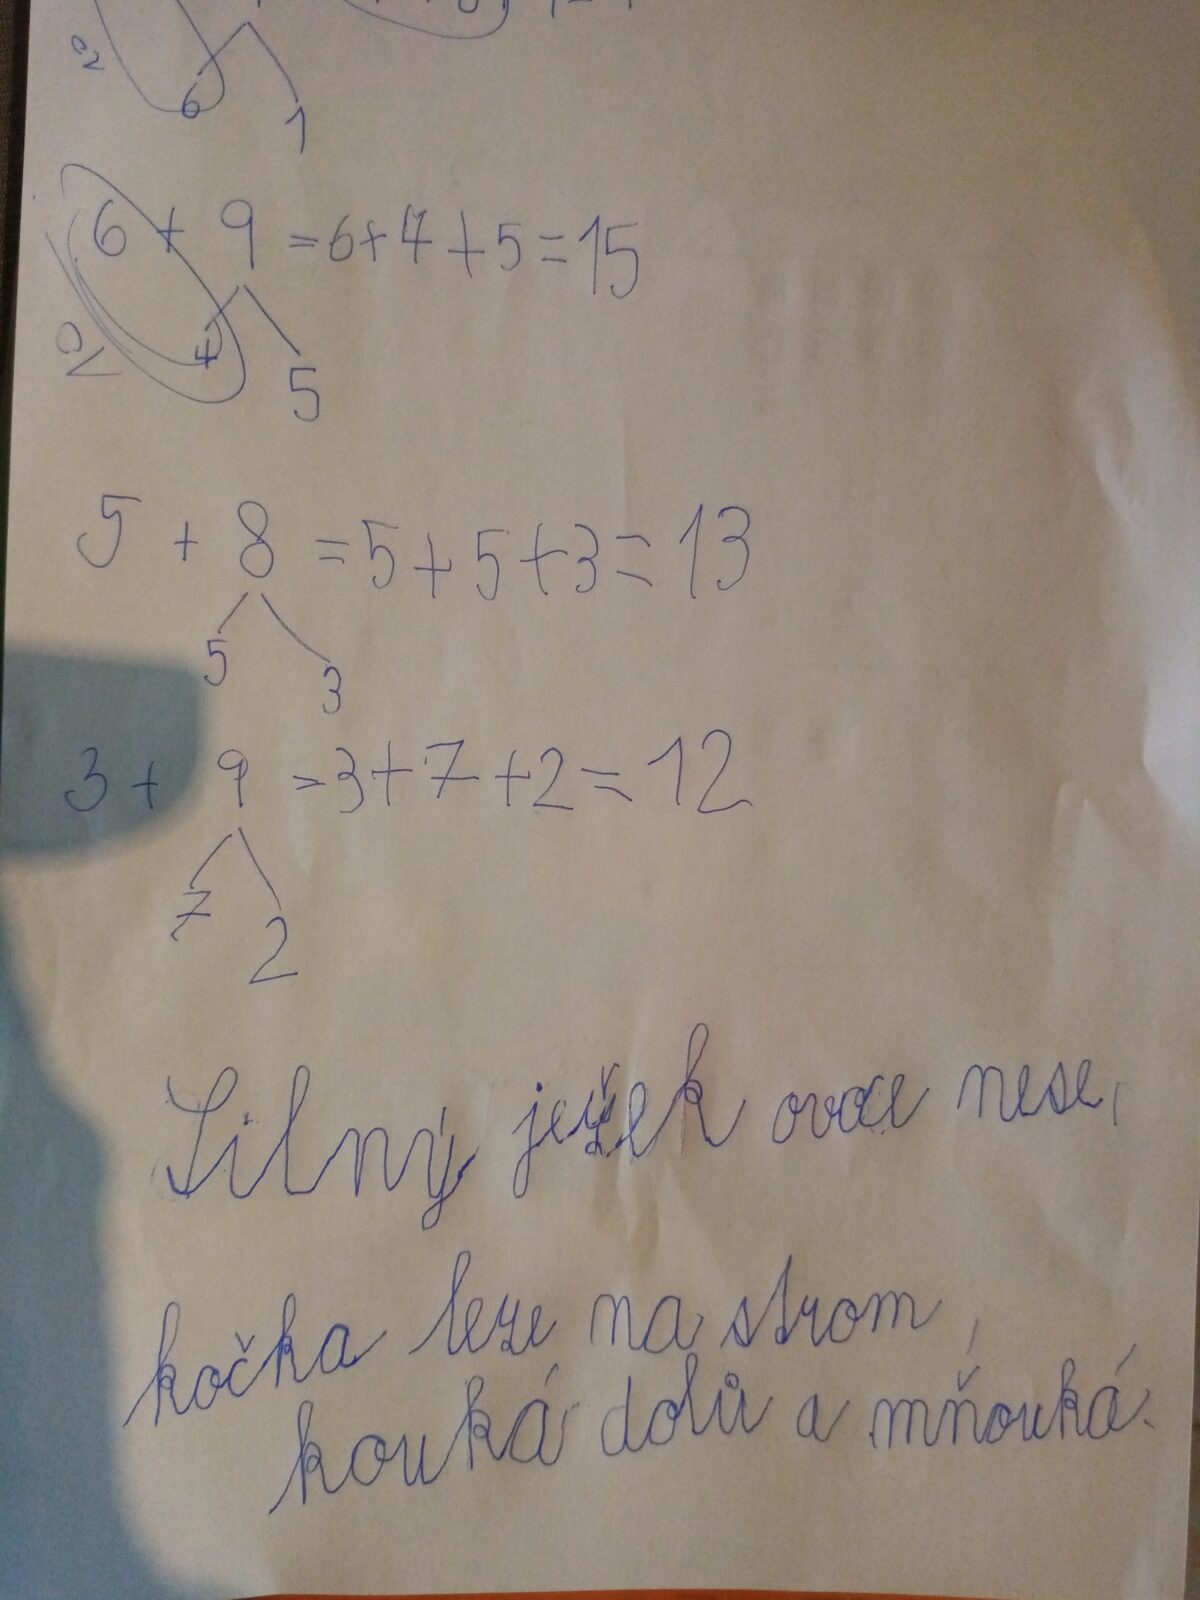 6 1
6 + 9 = 6+4+5=15
4 5
5 + 8 = 5+5+3=13
5 3
3 + 9 = 3+7+2=12
7 2
Silný ježek ovoce nese,
kočka leze na strom,
kouká dolů a mňouká.